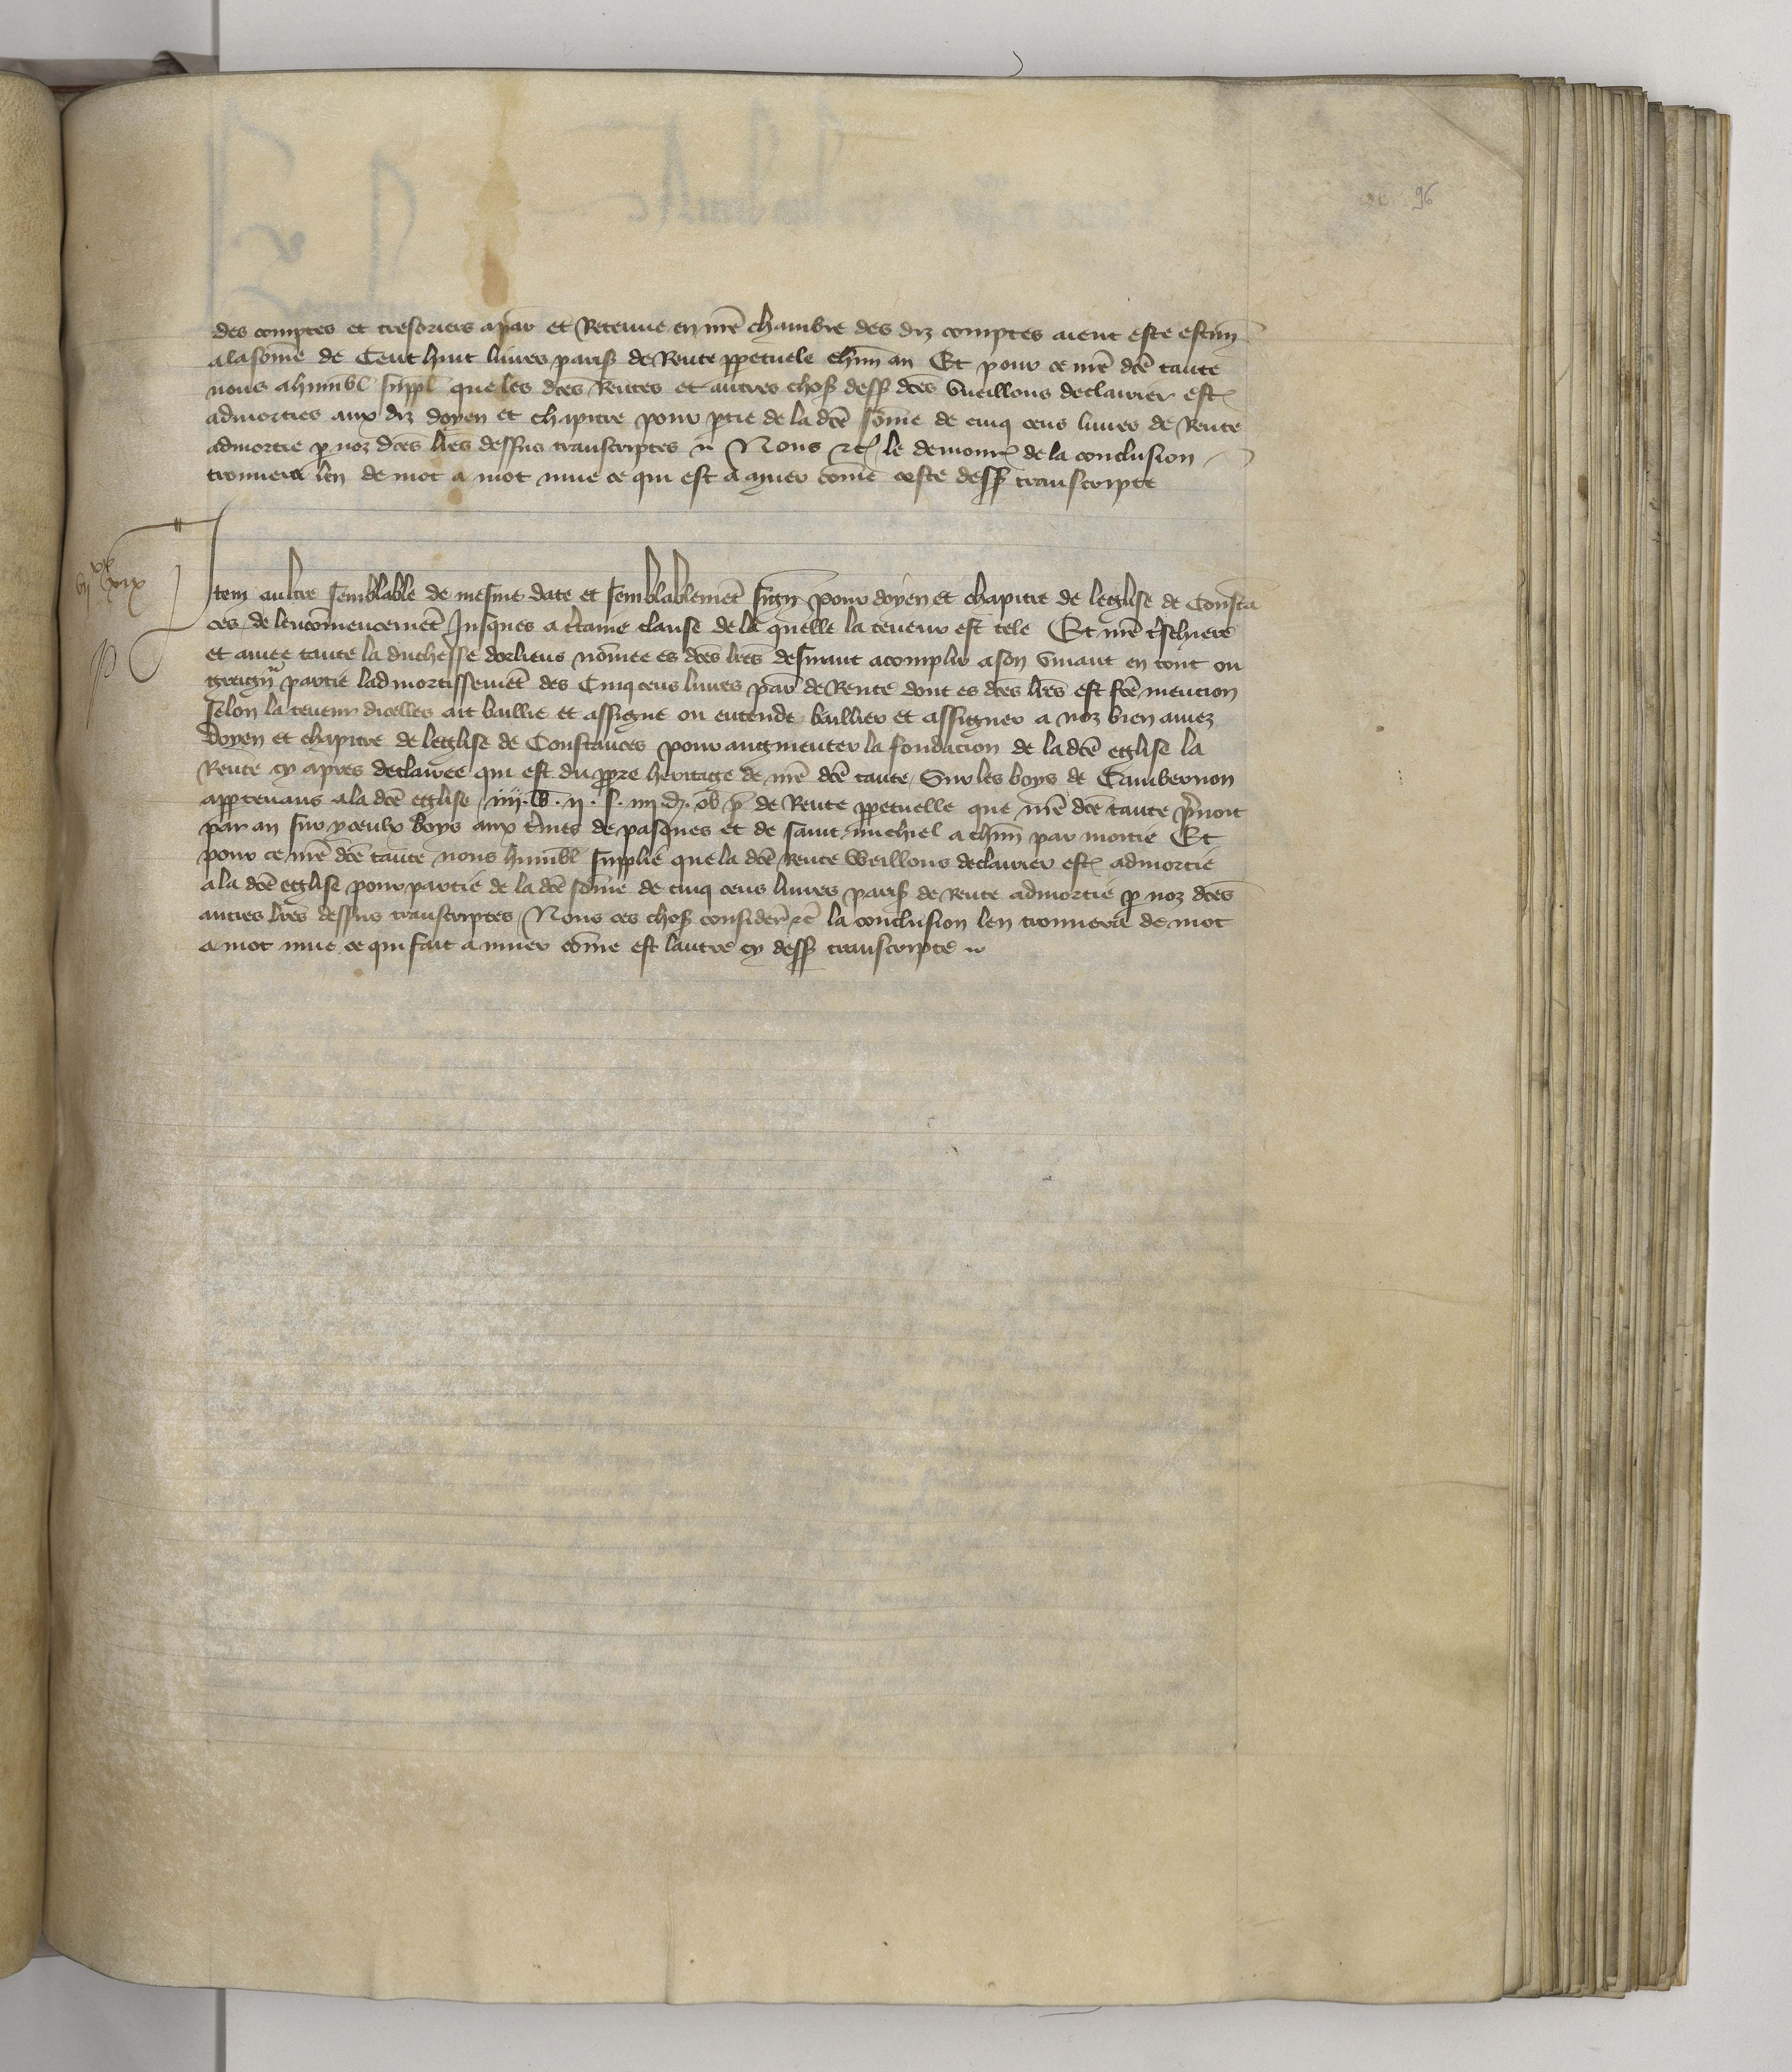 96
des comptes et tresoriers a par et Retenue en nrē chambre des diz comptes aient este estim̄
a la som̄e de Cent huit livres paris̄ de Rente ppetuele chūn an Et pour ce nrē dcē tante
nous a humbl suppl que les dcēs Rentes et autres chos dess dcēs vueillons declairier est̄
admorties aux diz doyen et chapitre pour ptie de la dcē som̄e de cinq cens livres de Rente
admortie p noz dcēs lrēs dessus transcriptes Nous etc le demour̄ de la conclusion
trouvera len de mot a mot mue ce qui est a muer com̄e ceste dess transcripte
vij xx xix
Item autre semblable de mesme date et semblablemēt sign̄ pour doyen et chapitre de leglise de Consta
ces de lencom̄encemēt Jusques a c̄taine clause de la quelle la teneur est tele Et nrē t̄schiere
et amee tante la duchesse dorliens nom̄ee es dcēs lrēs desirant acomplir a son vivant en tout ou
greign̄ partie ladmortissemēt des Cinq cens livres par̄ de Rente dont es dcēs lrēs est fcē mencion
selon la teneur dicelles ait baillie et assigne ou entende baillier et assigner a noz bien amez
doyen et chapitre de leglise de Constances pour augmenter la fondacion de la dcē eglise la
Rente cy apres declairee qui est du ppre heritage de nrē dcē tante Sur les boys de Cambernon
apptenans a la dcē eglise iiij. lb. ij. s. iiij d. ob p̄ de Rente ppetuelle que nrē dcē tante p̄noit
par an sur yceulx boys aux t̄mes de pasques et de saint michiel a chūn par moitie Et
pour ce nrē dcē tante nous humbl supplie que la dcē Rente Weillons declairier est̄ admortie
a la dcē eglise pour partie de la dcē som̄e de cinq cens livres paris̄ de Rente admortie p noz dcēs
autres lrēs dessus transcriptes Nous ces chos consider̄ etc̄ la conclusion len trouvera de mot
a mot mue ce qui fait a muer com̄e est lautre cy dess transcripte